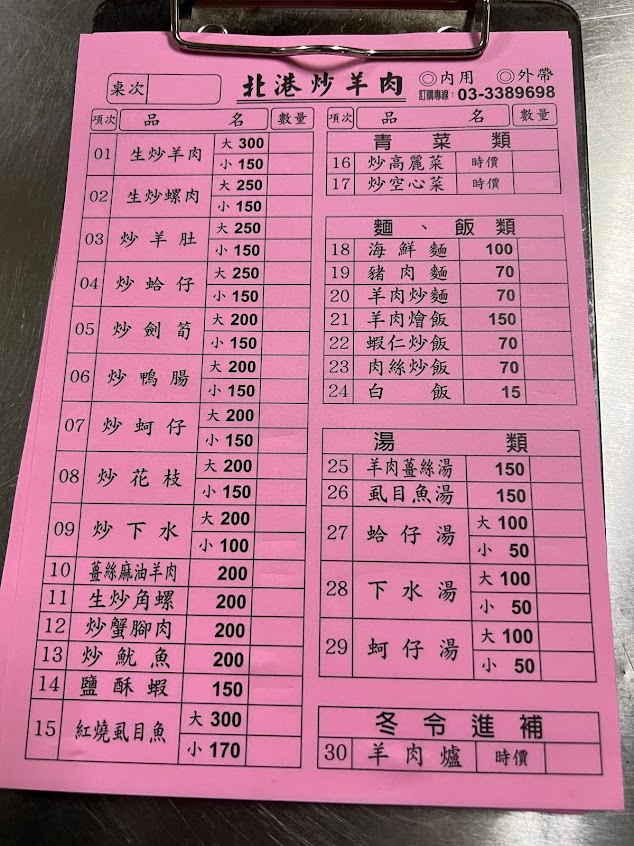 桌次
北港炒羊肉
◎內用 ◎外帶
訂購專線：03-3389698
項次 品名 數量
01 生炒羊肉 大 300
小 150
02 生炒螺肉 大 250
小 150
03 炒羊肚 大 250
小 150
04 炒蛤仔 大 250
小 150
05 炒劍筍 大 200
小 150
06 炒鴨腸 大 200
小 150
07 炒蚵仔 大 200
小 150
08 炒花枝 大 200
小 150
09 炒下水 大 200
小 100
10 薑絲麻油羊肉 200
11 生炒角螺 200
12 炒蟹腳肉 200
13 炒魷魚 200
14 鹽酥蝦 150
15 紅燒虱目魚 大 300
小 170
項次 品名 數量
青菜類
16 炒高麗菜 時價
17 炒空心菜 時價
麵、飯類
18 海鮮麵 100
19 豬肉麵 70
20 羊肉炒麵 70
21 羊肉燴飯 150
22 蝦仁炒飯 70
23 肉絲炒飯 70
24 白飯 15
湯類
25 羊肉薑絲湯 150
26 虱目魚湯 150
27 蛤仔湯 大 100
小 50
28 下水湯 大 100
小 50
29 蚵仔湯 大 100
小 50
冬令進補
30 羊肉爐 時價